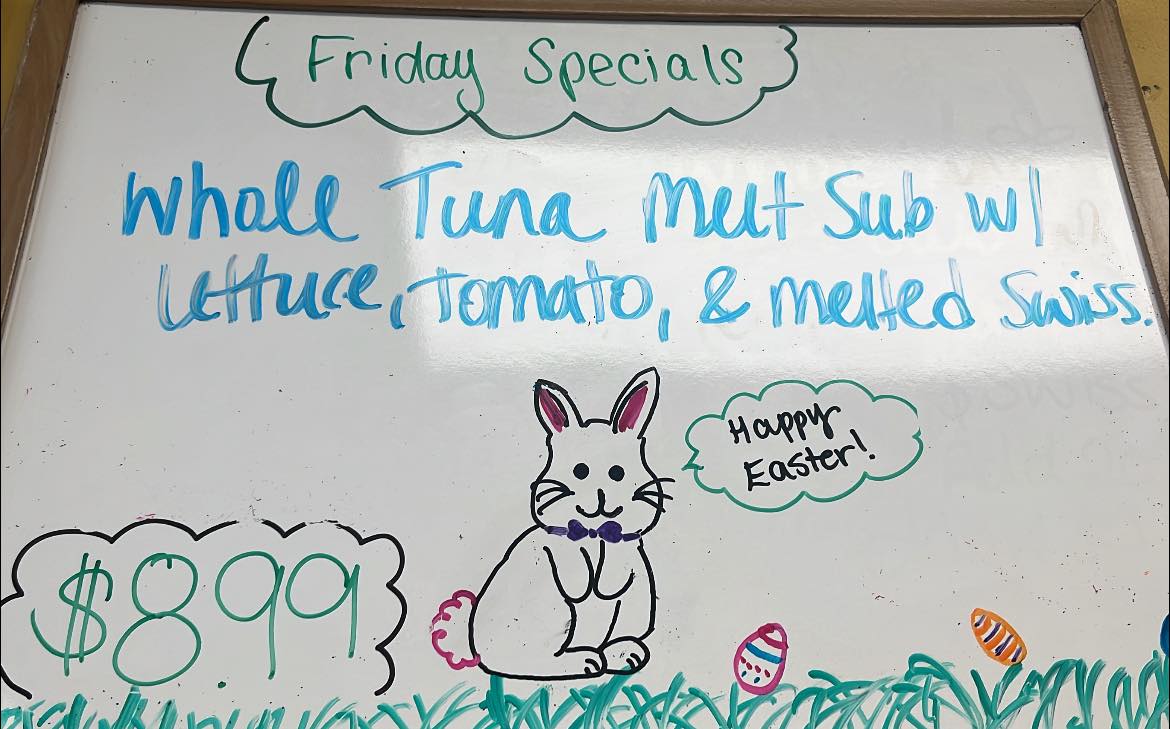 Friday Specials
Whole Tuna Melt Sub w/
Lettuce, Tomato, & Melted Swiss.
Happy
Easter!
$8.99